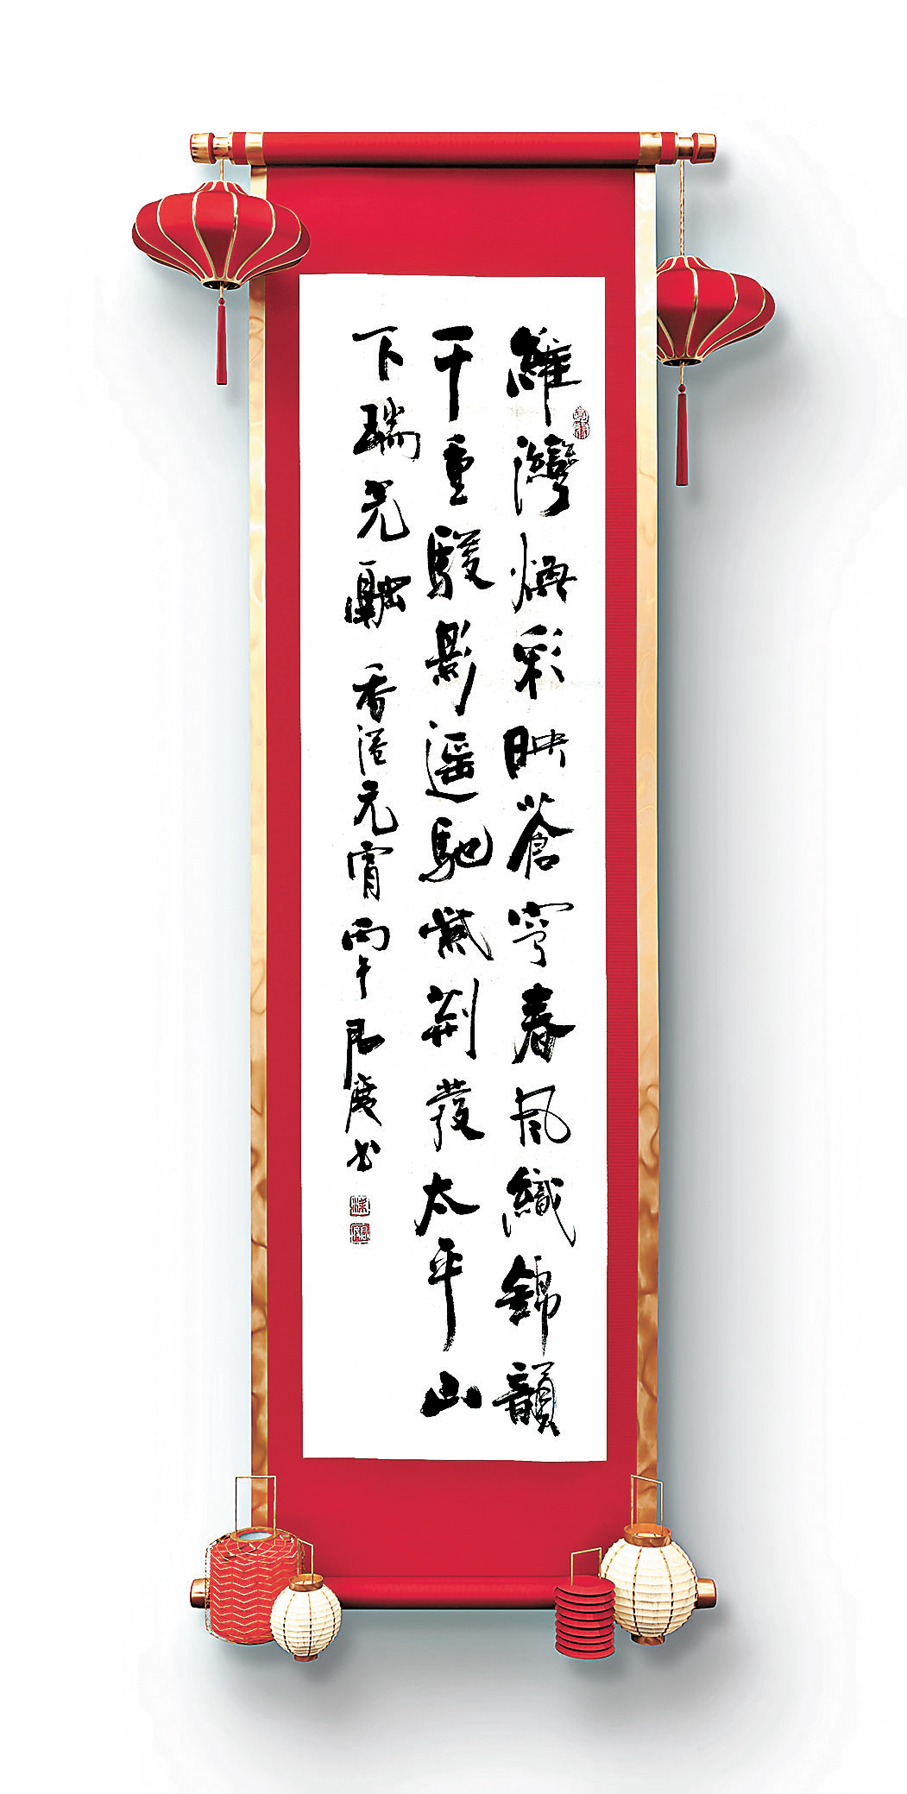 維灣煥彩映蒼穹春風織錦韻
千重駿影遥馳紫荊發太平山
下瑞光融 香港元宵 丙午 书